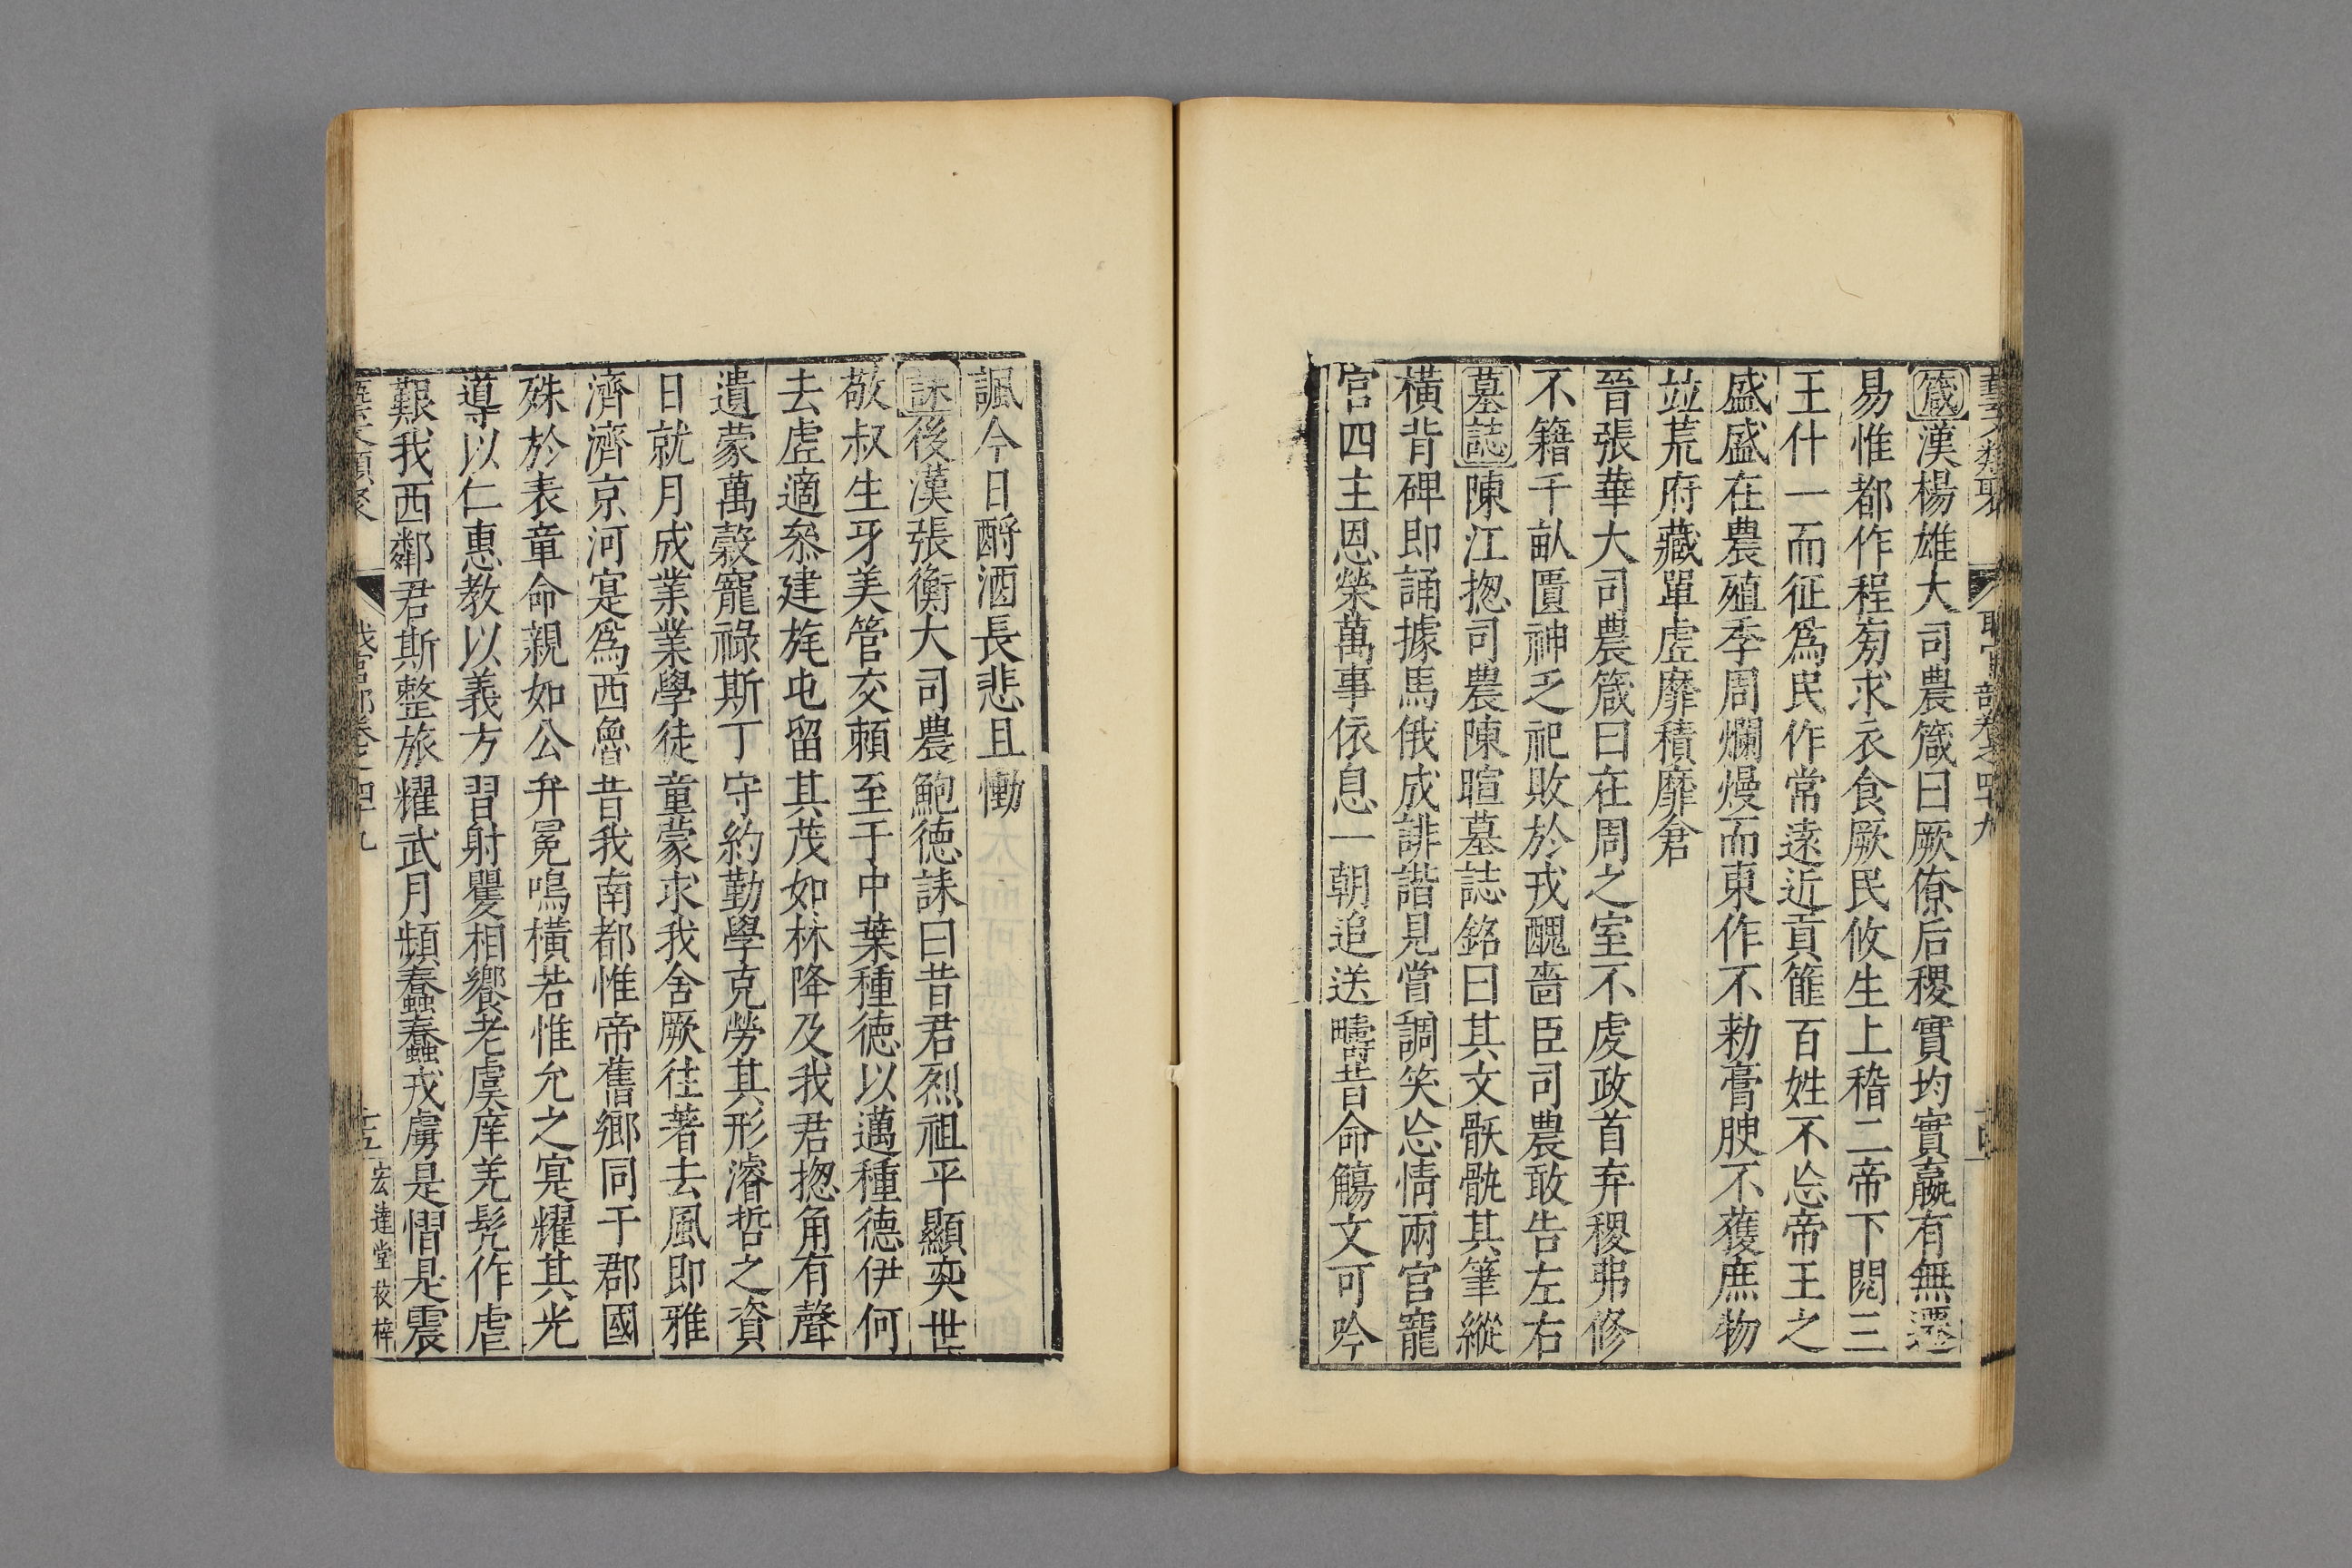 藝文類聚 職官部卷之四十九
箴漢楊雄大司農箴曰厥僚后稷實均實贏有無遷
易惟都作程旁求衣食厥民攸生上稽二帝下閱三
王什一而征為民作常遠近貢篚百姓不忘帝王之
盛盛在農殖季周爛熳而東作不勑膏腴不獲庶物
竝荒府藏單虛靡積靡倉
晉張華大司農箴曰在周之室不虔政首弃稷弗修
不籍千畝匱神乏祀敗於戎醜嗇臣司農敢告左右
墓誌陳江揔司農陳暄墓誌銘曰其文骫骳其筆縱
橫背碑即誦據馬俄成誹諧見嘗調笑忘情兩宮寵
官四主恩榮萬事依息一朝追送疇昔命觴文可吟
諷今日酹酒長悲且慟
誄後漢張衡大司農鮑德誄曰昔君烈祖平顯奕世
敬叔生牙美管交賴至于中葉種德以邁種德伊何
去虛適叅建旄屯留其茂如林降及我君揔角有聲
遺蒙萬穀寵祿斯丁守約勤學克勞其形濬哲之資
日就月成業業學徒童蒙求我舍厥往著去風即雅
濟濟京河寔為西魯昔我南都惟帝舊鄉同于郡國
殊於表章命親如公弁冕鳴橫若惟允之寔耀其光
導以仁惠教以義方習射矍相饗老虞庠羌髡作虐
艱我西鄰君斯整旅耀武月頻蠢蠢戎虜是慴是震
藝文類聚 職官部卷之四十九 十五 宏達堂校梓